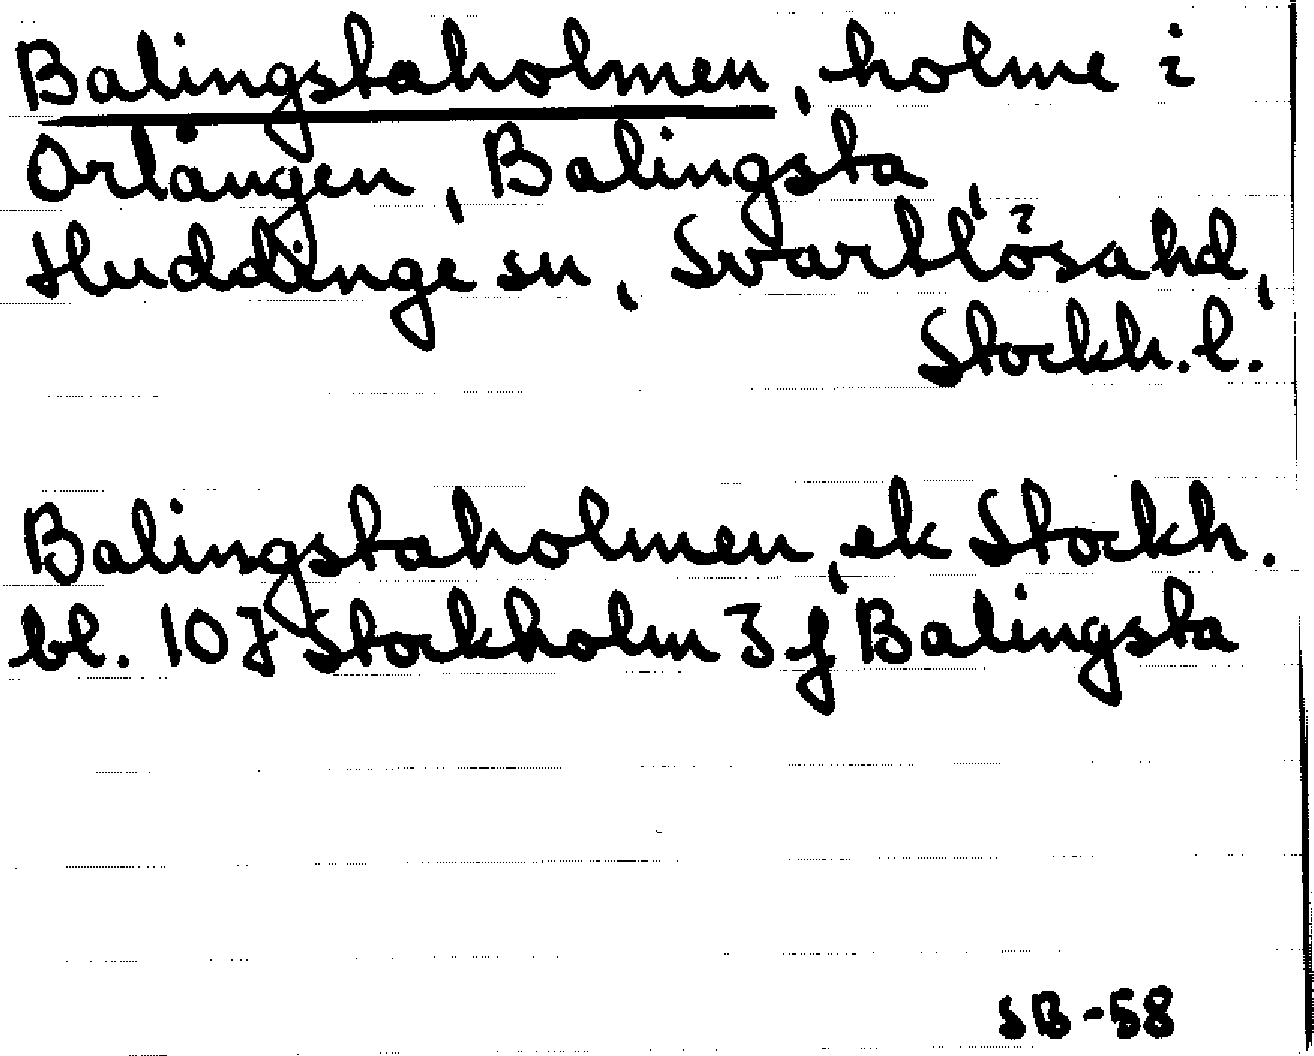 Balingstaholmen, holme i
Orlången, Balingsta,
Huddinge sn, Svartlösahd,
Stockh. l.
Balingstaholmen, ek Stockh.
bl. 10J Stockholm 3 f Balingsta
SB-58